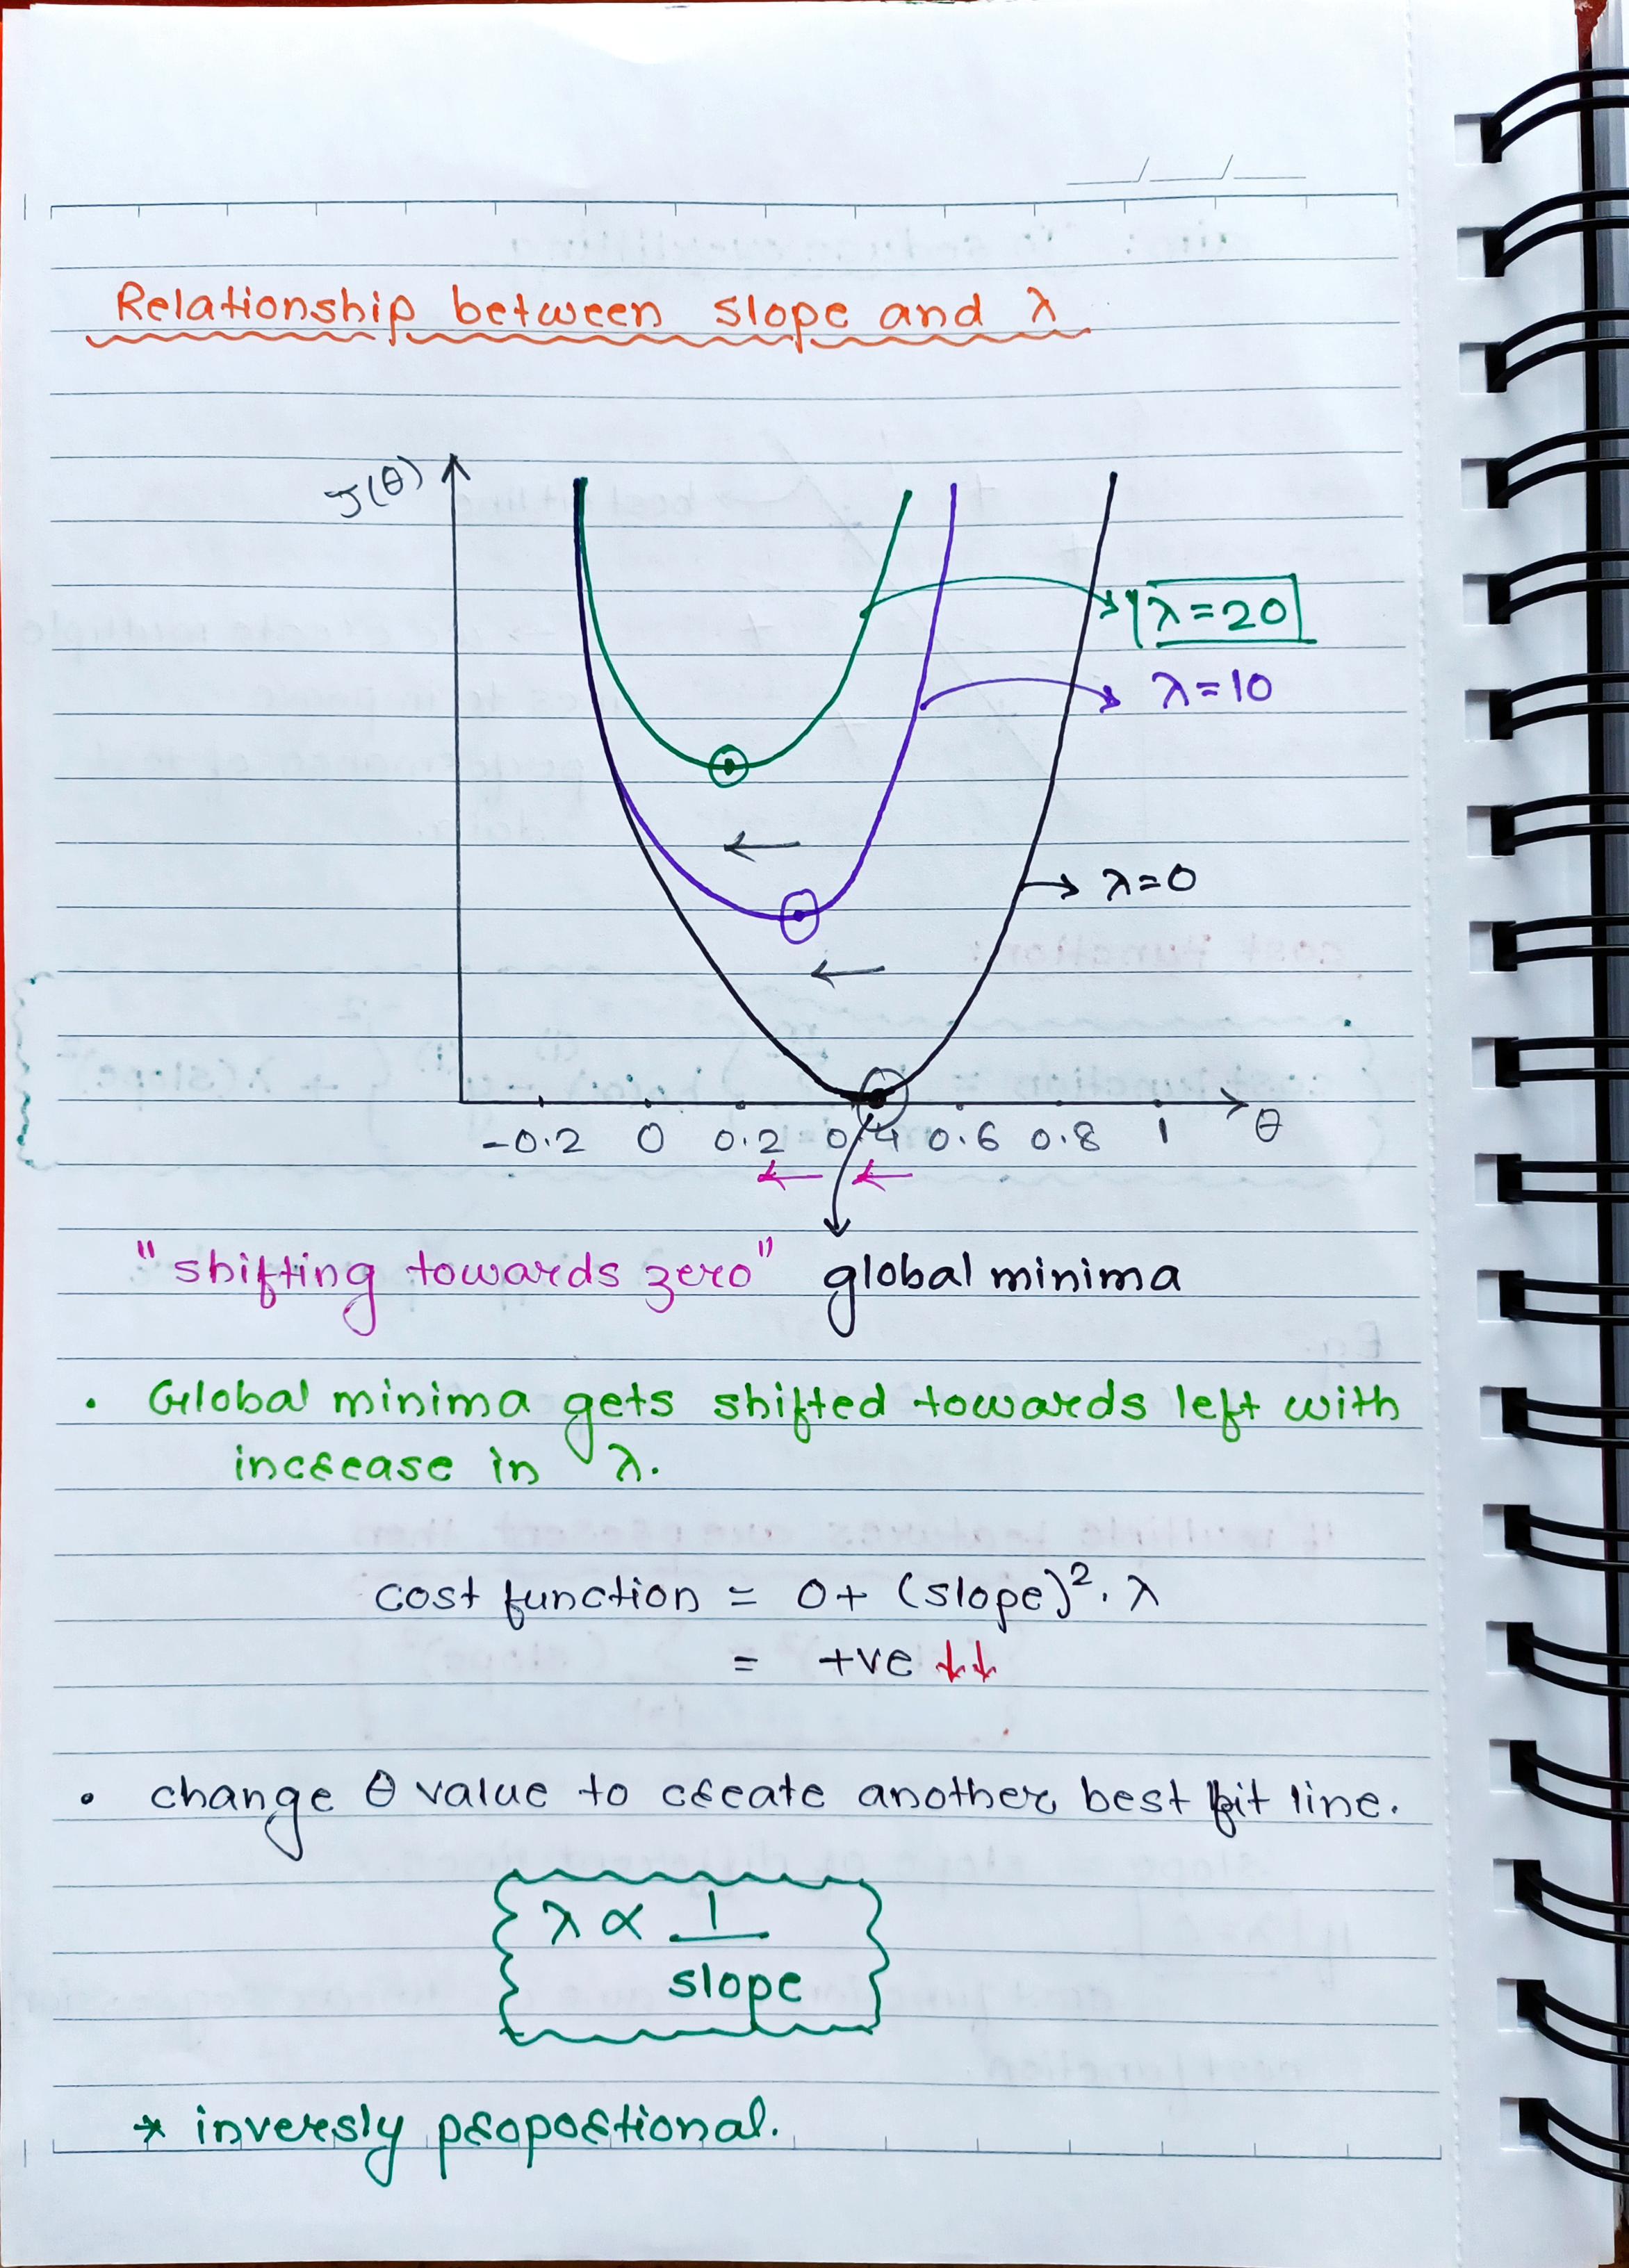 Relationship between slope and λ
J(θ)
λ=20
λ=10
λ=0
-0.2 0 0.2 0.4 0.6 0.8 1 θ
"shifting towards zero" global minima
• Global minima gets shifted towards left with
increase in λ.
cost function = 0+ (slope)². λ
= +ve ↓↓
• change θ value to create another best fit line.
λ ∝ 1
slope
* inversly proportional.